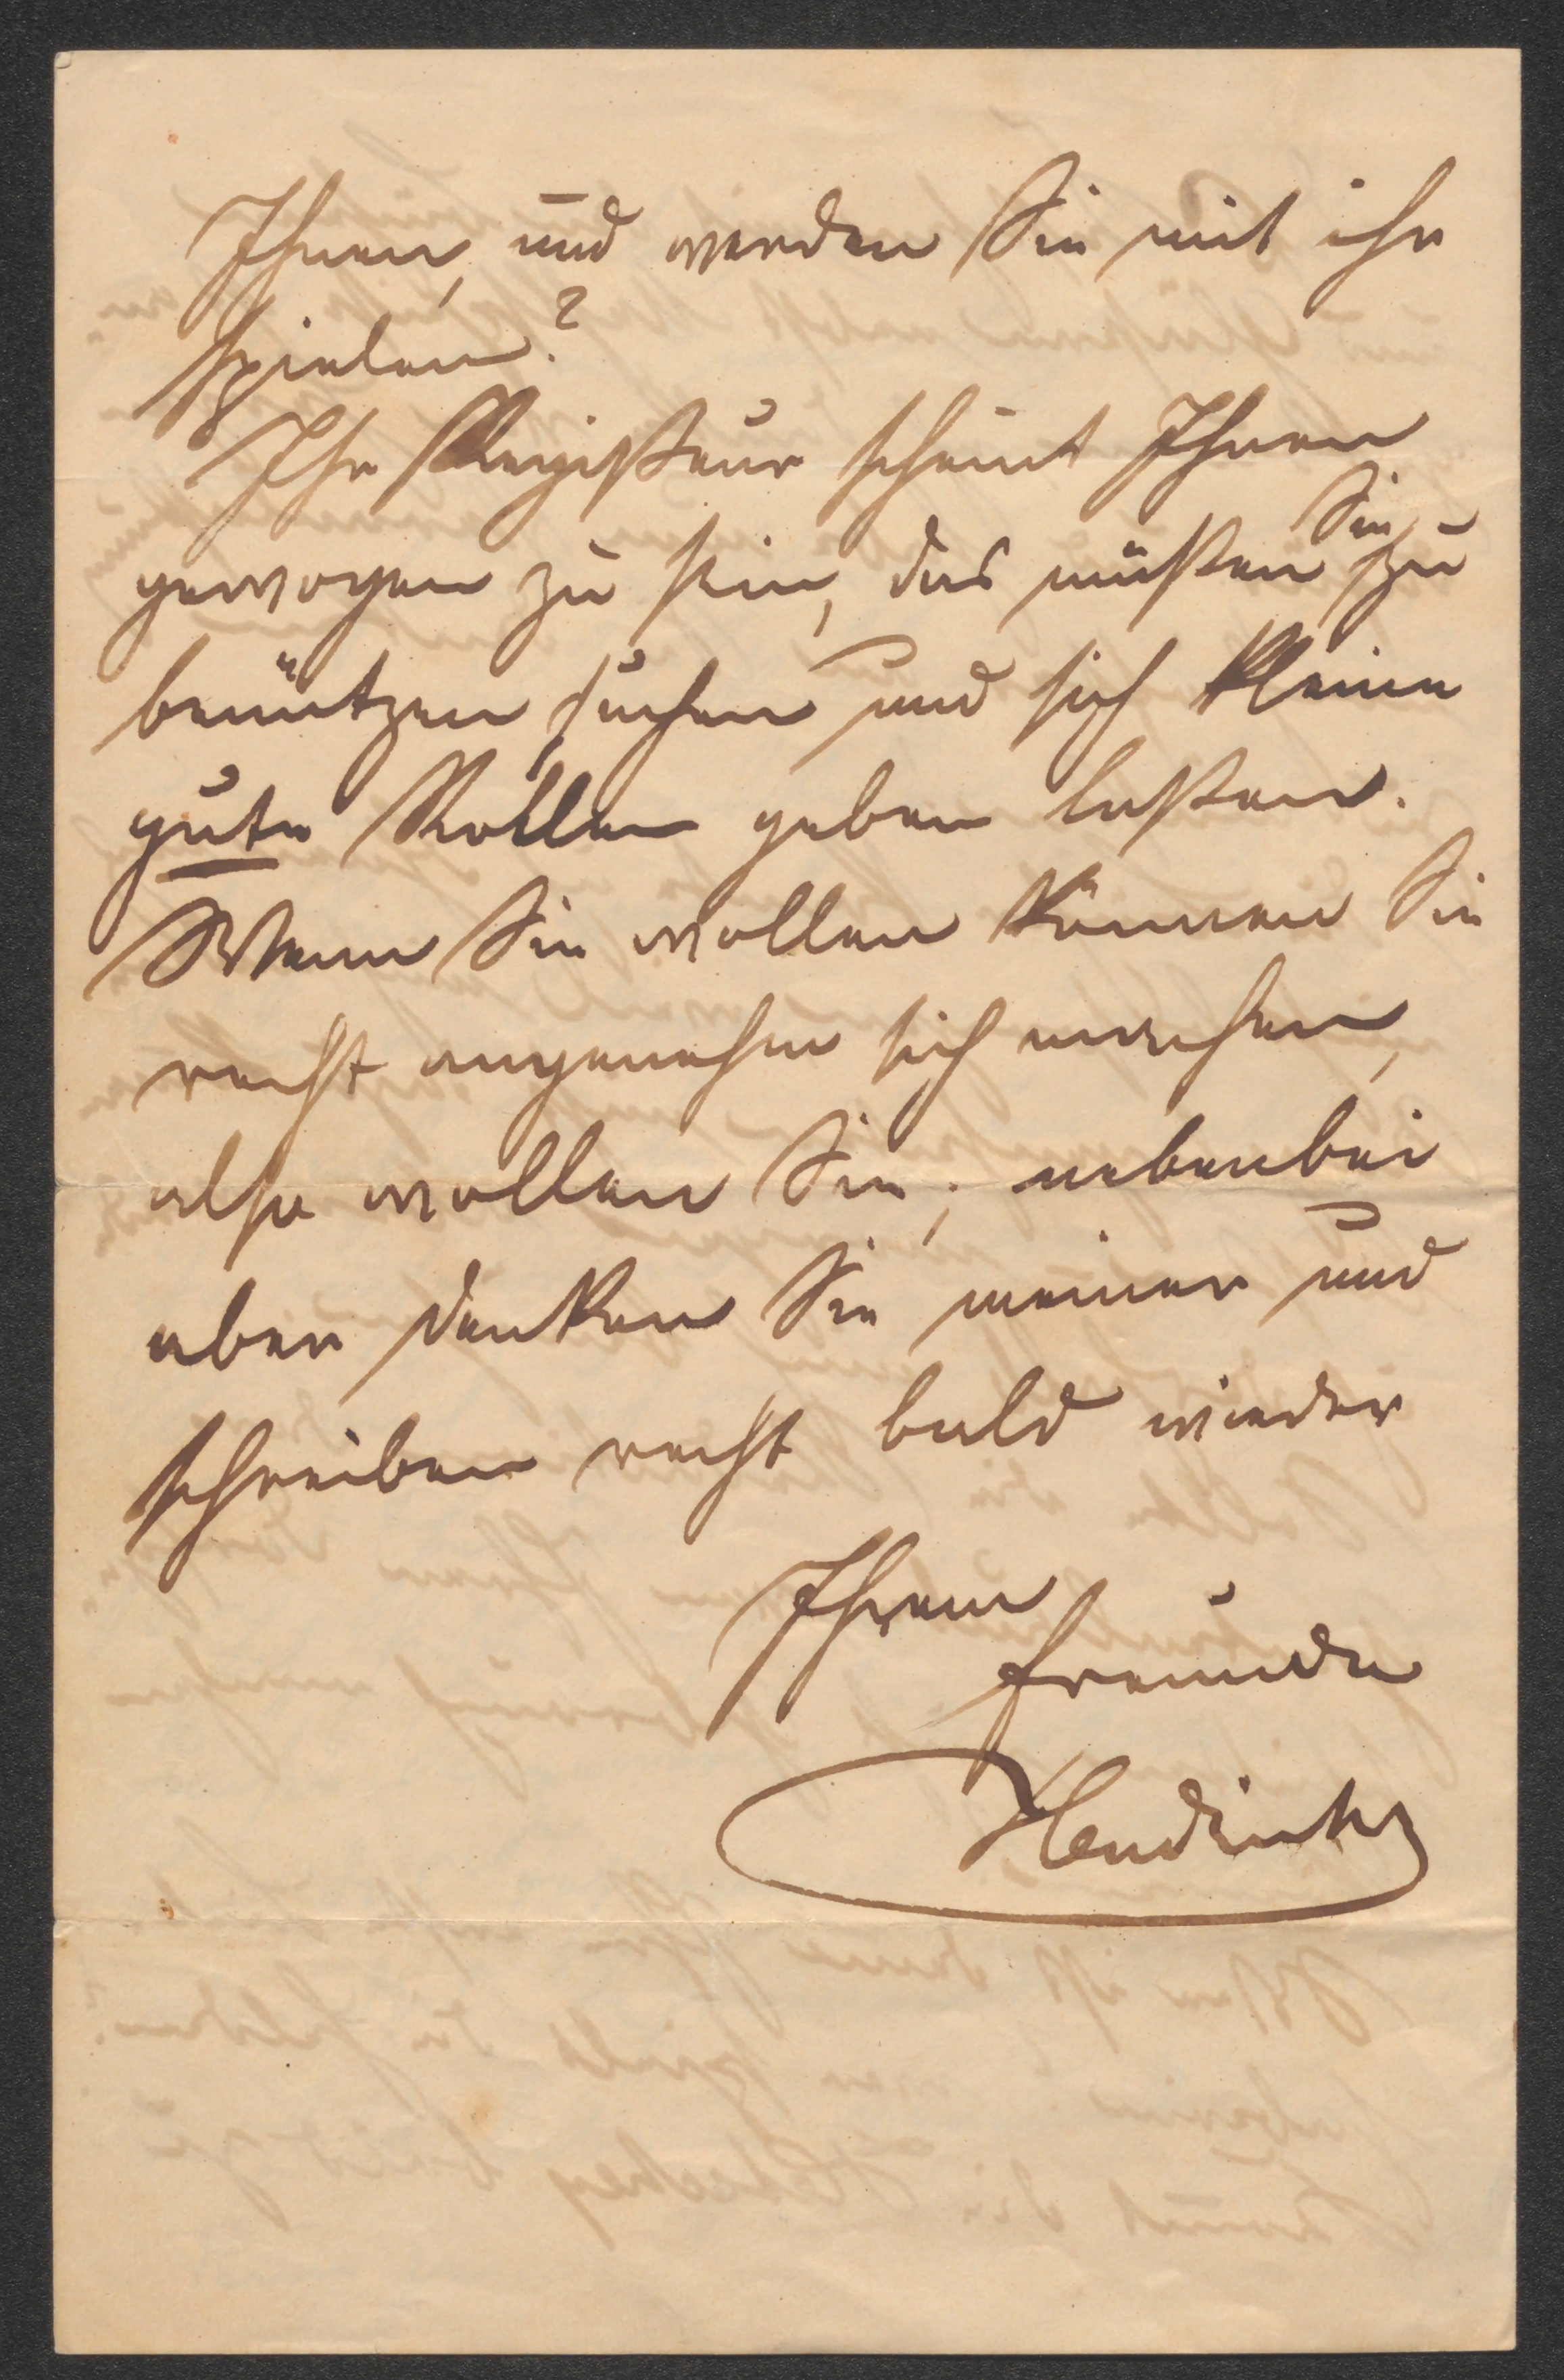 Ihnen, und werden Sie mit ihr
spielen?
Ihr Regißeur scheint Ihnen
gewogen zu sein, das müßen Sie zu
benützen suchen und sich kleine
gute Rollen geben laßen.
Wenn Sie wollen können Sie
recht angenehm sich machen,
also wollen Sie; nebenbei
aber denken Sie meiner und
schreiben recht bald wieder
Ihrem
Freunde